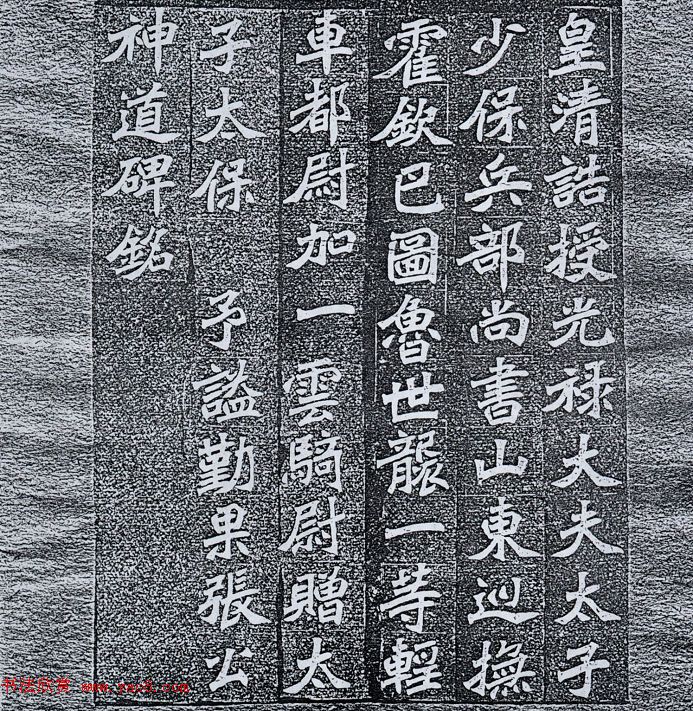 皇清誥授光祿大夫太子
少保兵部尚書山東巡撫
霍欽巴圖魯世襲一等輕
車都尉加一雲騎尉贈太
子太保 予謚勤果張公
神道碑銘
书法欣赏 www.yac8.com